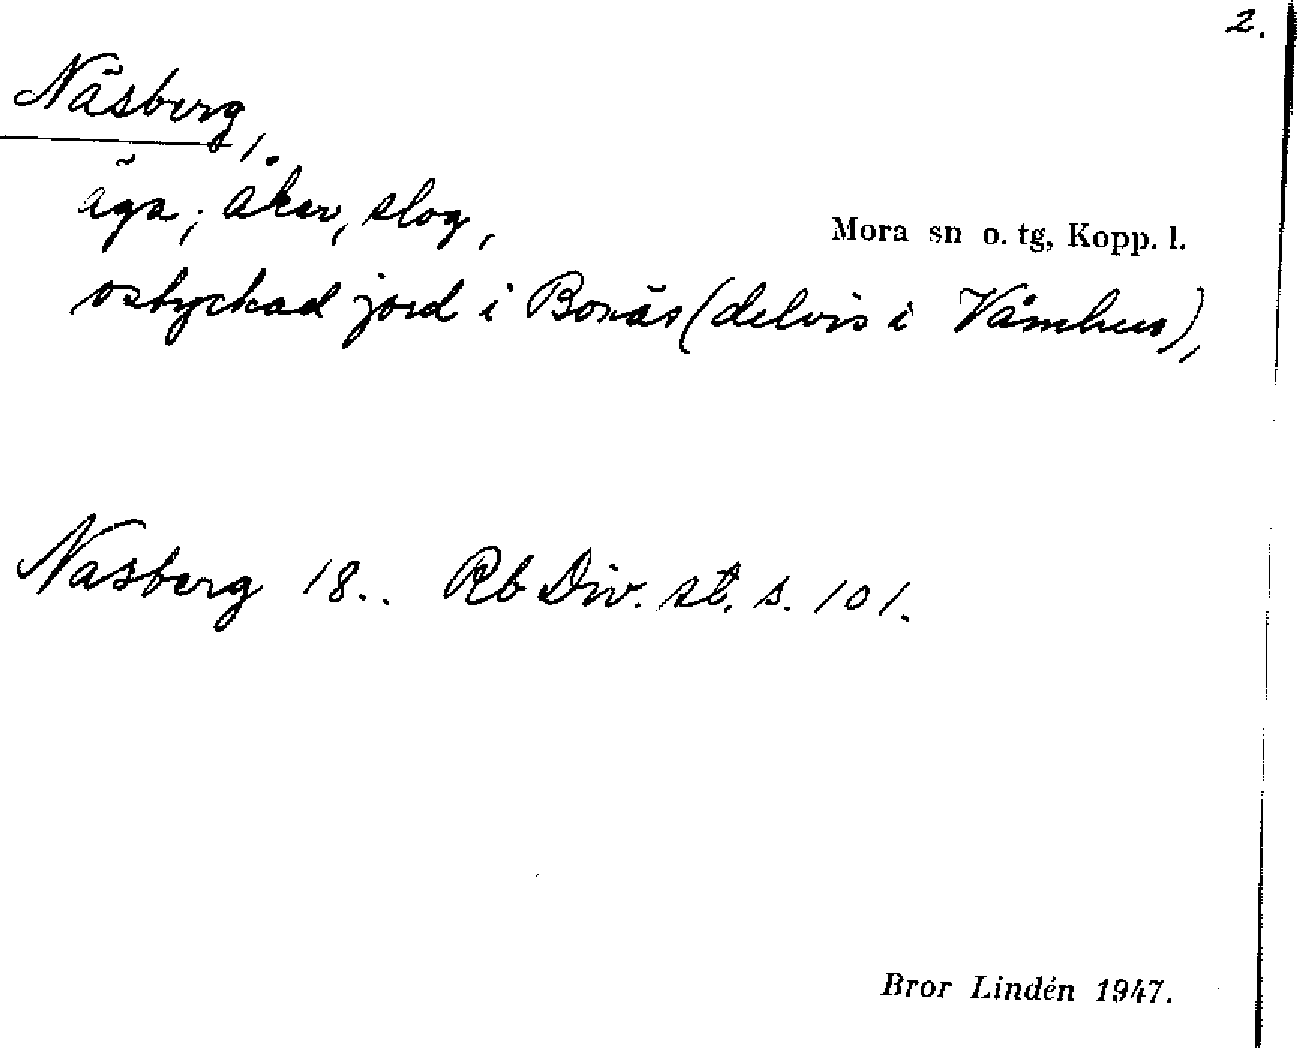 2.
Näsberg,
äga; åker, slog,
Mora sn o. tg, Kopp. l.
ostyckad jord i Bonäs (delvis i Våmhus),
Nasberg 18.. Rb Div. st. s. 101.
Bror Lindén 1947.